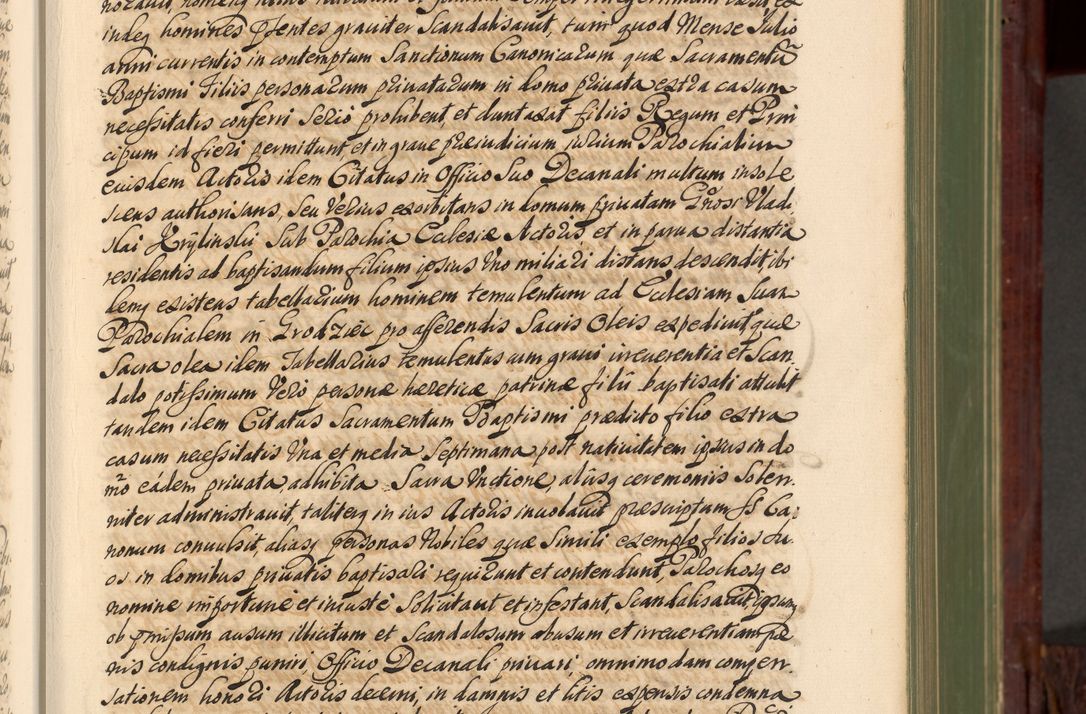 indeq homines pſentes graviter Scandalisavit, tum quod Mense Julio
anni currentis in contemptum Sanctionum Canonicarum quæ Sacramentũ
Baptismi Filiis personarum privatarum in domo privata extra casum
necessitatis conferri serio prohibent, et duntaxat filiis Regum et Prin
cipum id fieri permittunt et in grave præiudicium jurium Parochialium
eiusdem Actoris idem Citatus in Officio Suo Decanali multum insole
scens authorisans, seu verius exorbitans in domum privatam Gñosi Vladi
slai Krylinskii Sub Parochia Ecclesiæ Actoris, et in parva distantia
residentis ad baptisandum filium ipsius Uno miliari distans descendit, ibi
demq existens tabellarium hominem temulentum ad Ecclesiam Suam
Parochialem in Grodziec pro afferendis Sacris Oleis expedivit, quæ
Sacra olea idem Tabellarius temulentus cum gravi irreverentia et Scan
dalo potissimum Vero personæ hæreticæ patrinæ filii baptisati attulit
tandem idem Citatus Sacramentum Baptismi prædicto filio extra
casum necessitatis Una et media Septimana post nativitatem ipsius in do
mõ eâdem privata, adhibita Sacra Unctione, aliisq ceremoniis Solem
niter administravit, taliterq in ius Actoris involavit præscriptum SS Ca
nonum convulsit, aliasq personas Nobiles quæ Simili exemplo filios Su
os in domibus privatis baptisari requirunt et contendunt, Parochosq eo
nomine importunè et iniustè Solicitant et infestant, Scandalisavit, ipsumq
ob pmissum ausum illicitum et Scandalosum abusum et irreverentiam pæ
nis condignis puniri, Officio Decanali privari, omnimodam compen
sationem honori Actoris decerni, in damnis et litis expensis condemna